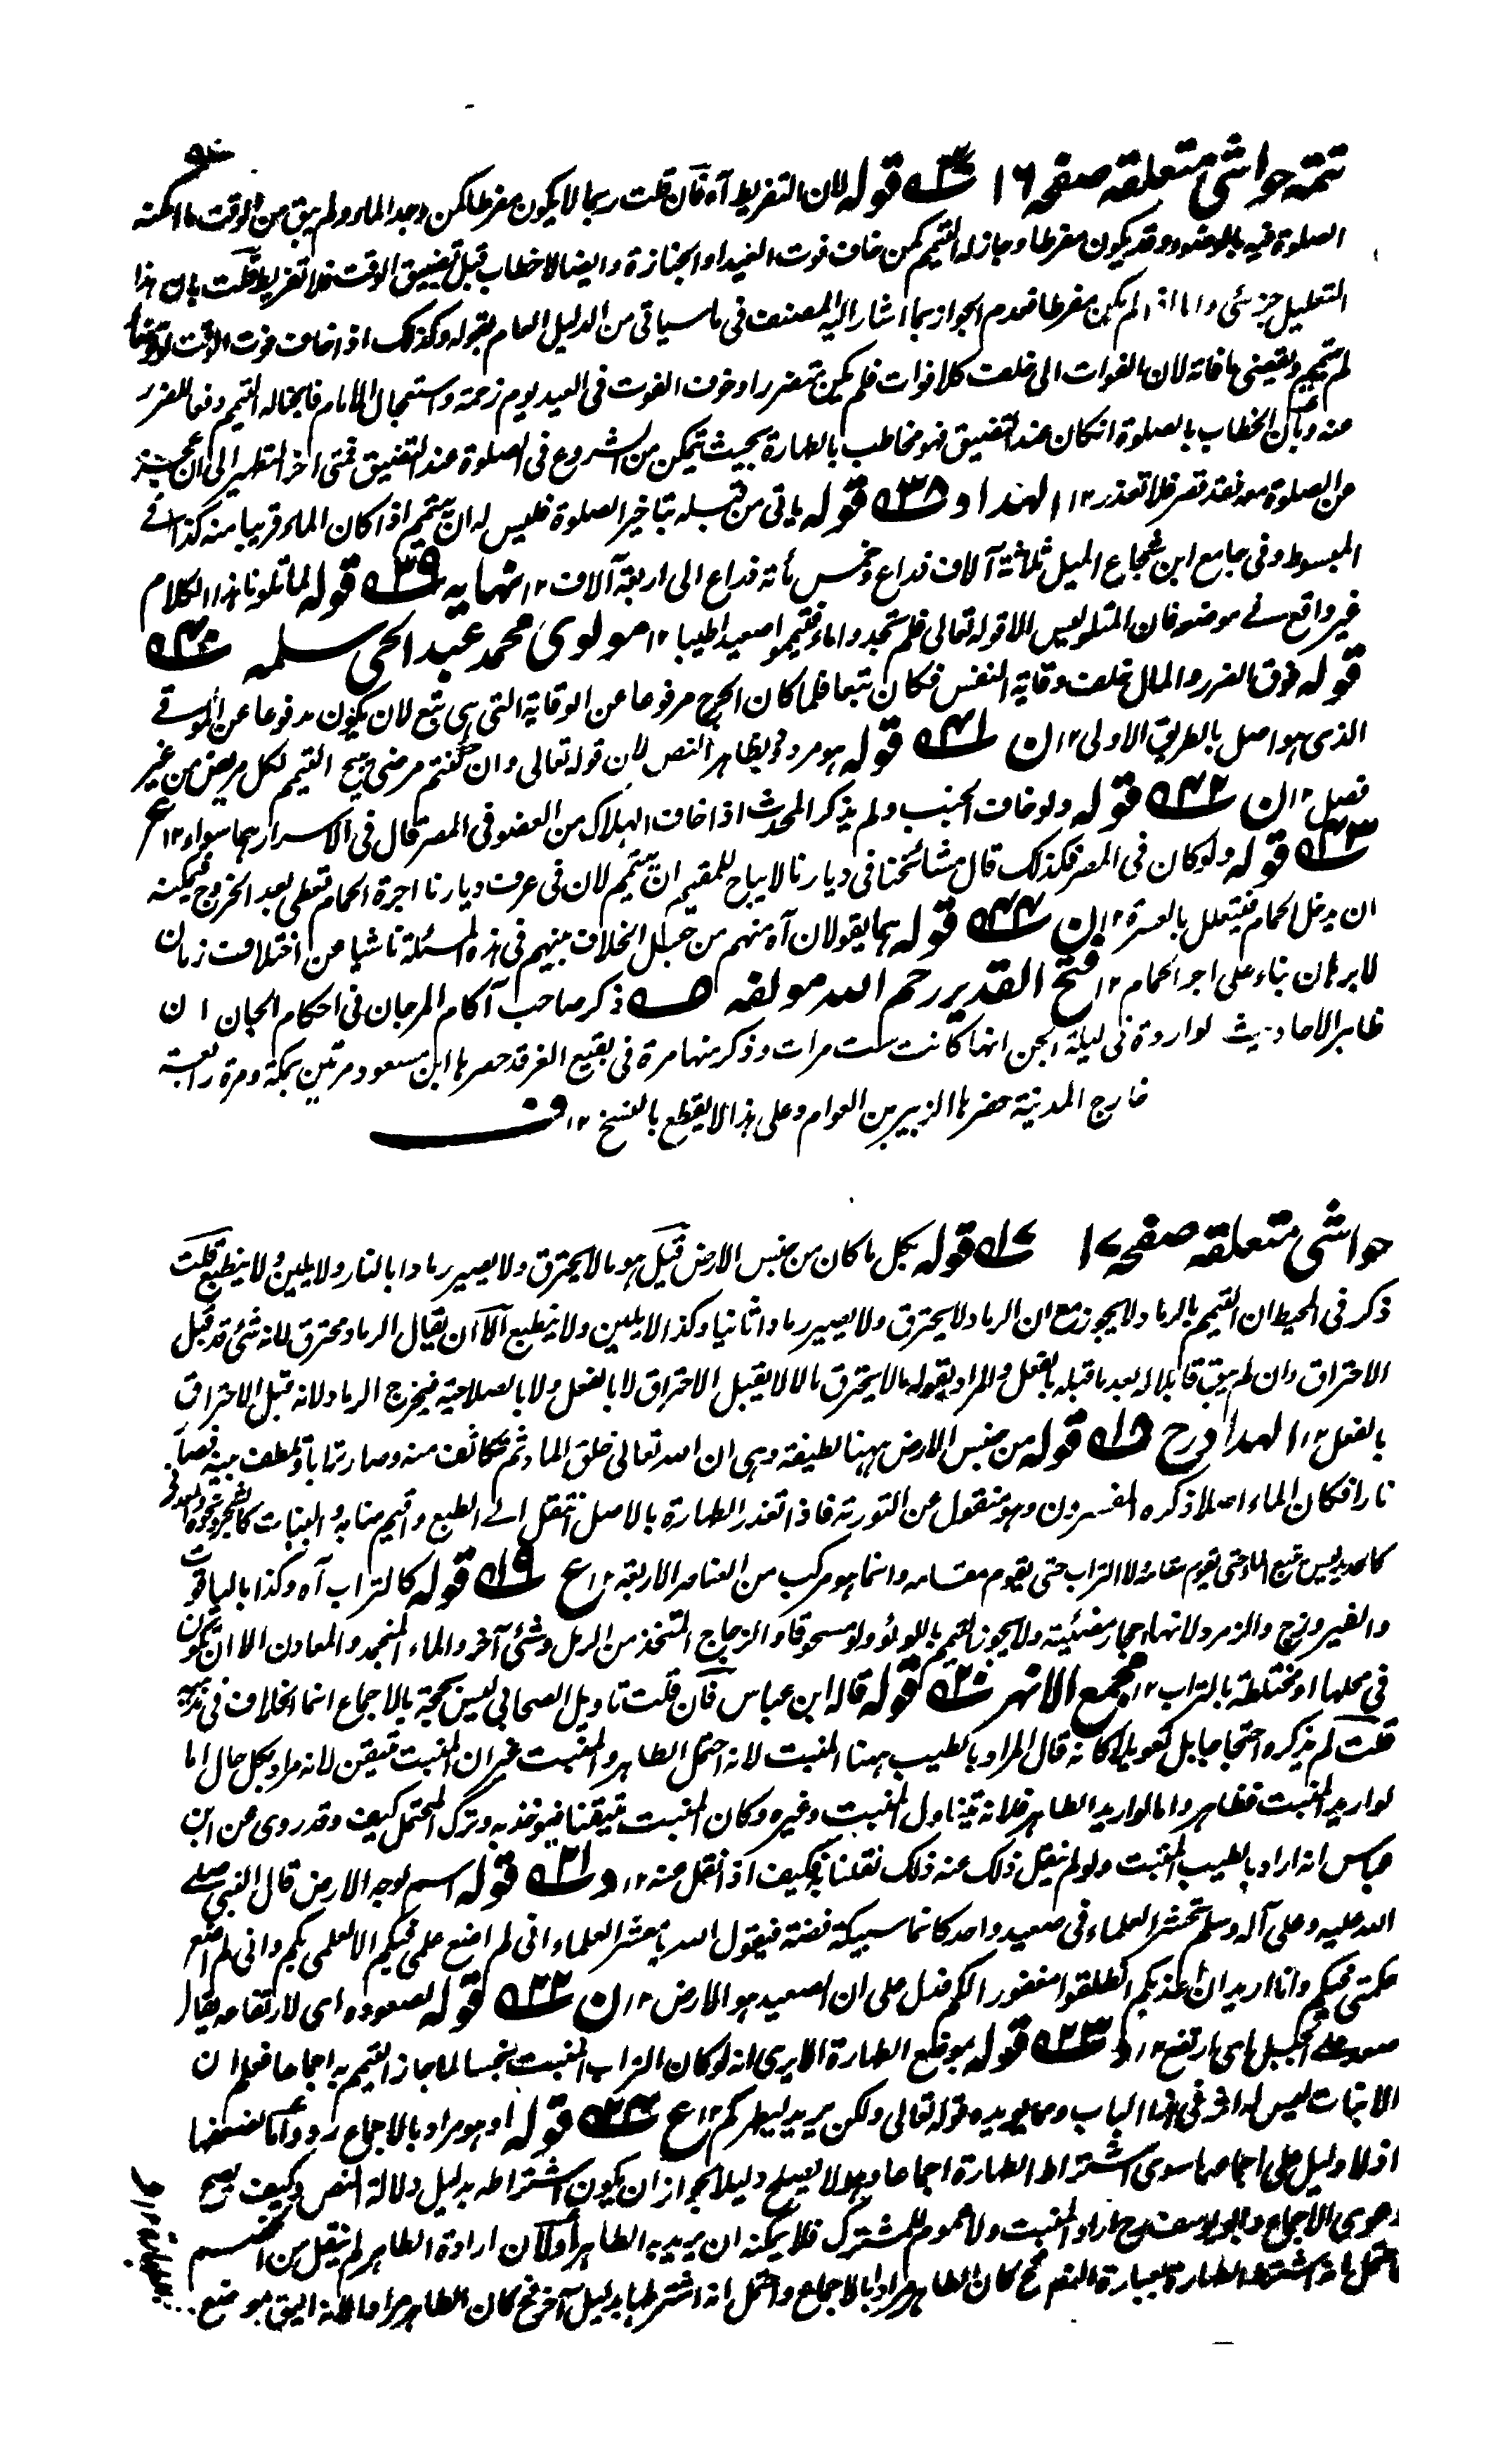 تتمه حواشی متعلقه صفحه ۱۶ ۳۷ قوله لان التفريط آه فان قلت ربما لا يكون مفرطا كمن وجد الماء ولم يبق من الوقت ما امكنه
الصلوة فيه بالوضوء وقد يكون مفرطا وجاز له التيمم كمن خاف فوت العيد او الجنازة وايضا لا خطاب قبل تضييق الوقت فلا تفريط قلت بان هذا
التعليل جزئى واما اذا لم يكن مفرطا فعدم الجواز بما اشار اليه المصنف فى ما سياتى من الدليل العام بقوله وكذلك اذا خاف فوت الوقت لو توضأ
لم يتيمم ويقضى ما فاته لان الفوات الى خلف كلا فوات فلم يكن متضررا وخوف الفوت فى العيد يوم زحمة واستعجال الامام فابحنا له التيمم دفعا للضرر
عنه وبأن الخطاب بالصلوة ان كان عند التضييق فهو مخاطب بالطهارة بحيث يتمكن من الشروع فى الصلوة عند التضييق فمتى اخر التطهير الى ان عجز
عن الصلوة معه فقد قصر فلا تعذر ۱۲ الهداد ۳۸ قوله ياتى من قبله بتاخير الصلوة فليس له ان يتيمم اذا كان الماء قريبا منه كذا فى
المبسوط وفى جامع ابن شجاع الميل ثلثة آلاف ذراع وخمس مأته ذراع الى اربعة آلاف ۱۲ نهايه ۳۹ قوله لما تلونا هذا الكلام
غير واقع فى موضعه فان المتلو ليس الا قوله تعالى فلم تجدوا ماء فتيمموا صعيدا طيبا ۱۲ مولوى محمد عبد الحى سلمه ۴۰
قوله فوق الضرر والمال خلقت وقاية النفس فكان تبعا فلما كان الحرج مرفوعا عن الوقاية التى هى تبع لان يكون مدفوعا عن الموقى
الذى هو اصل بالطريق الاولى ۱۲ ن ۴۱ قوله هو مردود بظاهر النص لان قوله تعالى وان كنتم مرضى يبيح التيمم لكل مريض من غير
فصل ۱۲ ن ۴۲ قوله ولو خاف الجنب ولم يذكر المحدث اذا خاف الهلاك من العضو فى المصر قال فى الاسرار هما سواء ۱۲ ع
۴۳ قوله ولو كان فى المصر فكذلك قال مشائخنا فى ديارنا لا يباح للمقيم ان يتيمم لان فى عرف ديارنا اجرة الحمام تعطى بعد الخروج فيمكنه
ان يدخل الحمام فيتعلل بالعسرة ۱۲ ن ۴۴ قوله هما يقولان آه منهم من جعل الخلاف بينهم فى هذه المسئلة ناشيا عن اختلاف زمان
لا برهان بناء على اجر الحمام ۱۲ فتح القدير رحم الله مولفه ذكر صاحب آكام المرجان فى احكام الجان ان
ظاهر الاحاديث الواردة فى ليلة الجن انها كانت ست مرات وذكر منها مرة فى بقيع الغرقد حضرها ابن مسعود مرتين بمكة ومرة رابعة
خارج المدينة حضرها الزبير بن العوام وعلى هذا لا يقطع بالنسخ ۱۲ ف
حواشی متعلقه صفحه ۱۷ ۱۷ قوله بكل ما كان من جنس الارض قيل هو ما لا يحترق ولا يصير رمادا بالنار ولا يلين ولا ينطبع قلت
ذكر فى المحيط ان التيمم بالرماد لا يجوز مع ان الرماد لا يحترق ولا يصير رمادا ثانيا وكذا لا يلين ولا ينطبع الا ان يقال الرماد محترق لانه شئ قد قبل
الاحتراق وان لم يبق قابلا له بعد ما قبله بالفعل والمراد بقوله ما لا يحترق ما لا يقبل الاحتراق لا بالفعل ولا بالصلاحية فيخرج الرماد لانه قبل الاحتراق
بالفعل ۱۲ الهداد رح ۱۸ قوله من جنس الارض ههنا لطيفة وهى ان الله تعالى خلق الماء ثم تكاثف منه وصار ترابا وتلطف منه فصار
نارا فكان الماء اصلا ذكره المفسرون وهو منقول عن التورية فاذا تعذر الطهارة بالاصل ينتقل الى الطبع واقيم منابه والنبات كالشجر ونحوه والمعدن
كالحديد ليس تبع الماء حتى يقوم مقامه ولا التراب حتى يقوم مقامه وانما هو مركب من العناصر الاربعة ۱۲ ع ۱۹ قوله كالتراب آه وكذا بالياقوت
والفيروزج والزمرد لانها احجار مضيئة ولا يجوز التيمم باللولؤ ولو مسحوقا والزجاج المتخذ من الرمل وشئ آخر والماء المنجمد والمعادن الا ان تكون
فى محلها او مختلطة بالتراب ۱۲ مجمع الانهر ۲۰ قوله قاله ابن عباس فان قلت تاويل الصحابى ليس بحجة بالاجماع انما الخلاف فى مذهبه
قلت لم يذكره احتجاجا بل تقوية له كانه قال المراد بالطيب ههنا المنبت لانه احتمل الطاهر والمنبت غير ان المنبت متيقن لانه مراد بكل حال اما
لو اريد المنبت فظاهر واما لو اريد الطاهر فلانه يتناول المنبت وغيره وكان المنبت متيقنا فيوخذ به وترك المحتمل كيف وقد روى عن ابن
عباس انه اراد بالطيب المنبت ولو لم ينقل ذلك عنه ذلك نقلنا به فكيف اذا نقل عنه ۱۲ د ۲۱ قوله اسم لوجه الارض قال النبى صلى
الله عليه وعلى آله وسلم تحشر العلماء فى صعيد واحد كانها سبيكة فضة فيقول الله يا معشر العلماء انى لم اضع علمى فيكم الا لعلمى بكم وانى لم اضع
حكمتى فيكم وانا اريد ان اعذبكم انطلقوا مغفورا لكم فدل على ان الصعيد هو الارض ۱۲ ن ۲۲ قوله لصعوده اى لارتفاعه يقال
صعد على الجبل اى ارتفع ۱۲ د ۲۳ قوله موضع الطهارة الا يرى انه لو كان التراب المنبت نجسا لما جاز التيمم به اجماعا فعلم ان
الانبات ليس له اثر فى هذا الباب ومما يويده قوله تعالى ولكن يريد ليطهركم ۱۲ ع ۲۴ قوله او هو مراد بالاجماع رد
اذ لا دليل على اجماعهما سوى اشتراط الطهارة اجماعا وهو لا يصلح دليلا لجواز ان يكون اشتراطه بدليل دلالة النص وكيف يصح
دعوى الاجماع وابو يوسف رح اراد المنبت ولا عموم للمشترك فلا يمكنه ان يريد به الطاهر اولا لان ارادة الطاهر لم ينقل من
احتمل انه اشترط الطهارة بعبارة النص فح كان الطاهر مرادا بالاجماع واحتمل انه اشترطها بدليل آخر فح كان الطاهر مرادا لانه اليق بموضع